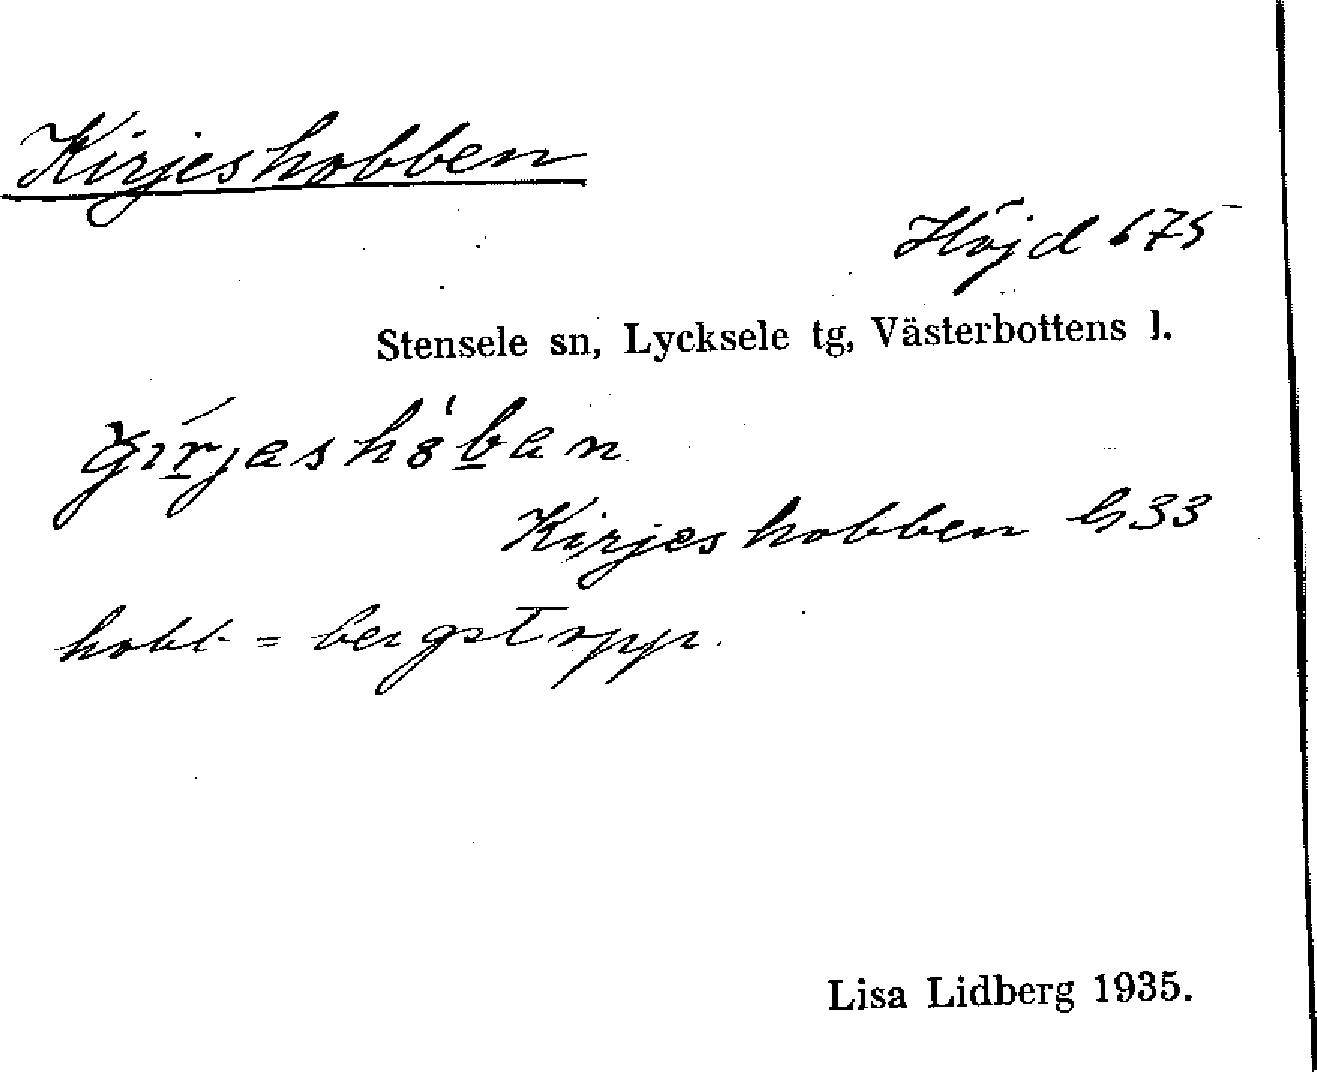 Kirjeshobben
Höjd 675
Stensele sn, Lycksele tg, Västerbottens l.
Kirjeshobben G33
hobb = bergstopp.
Lisa Lidberg 1935.